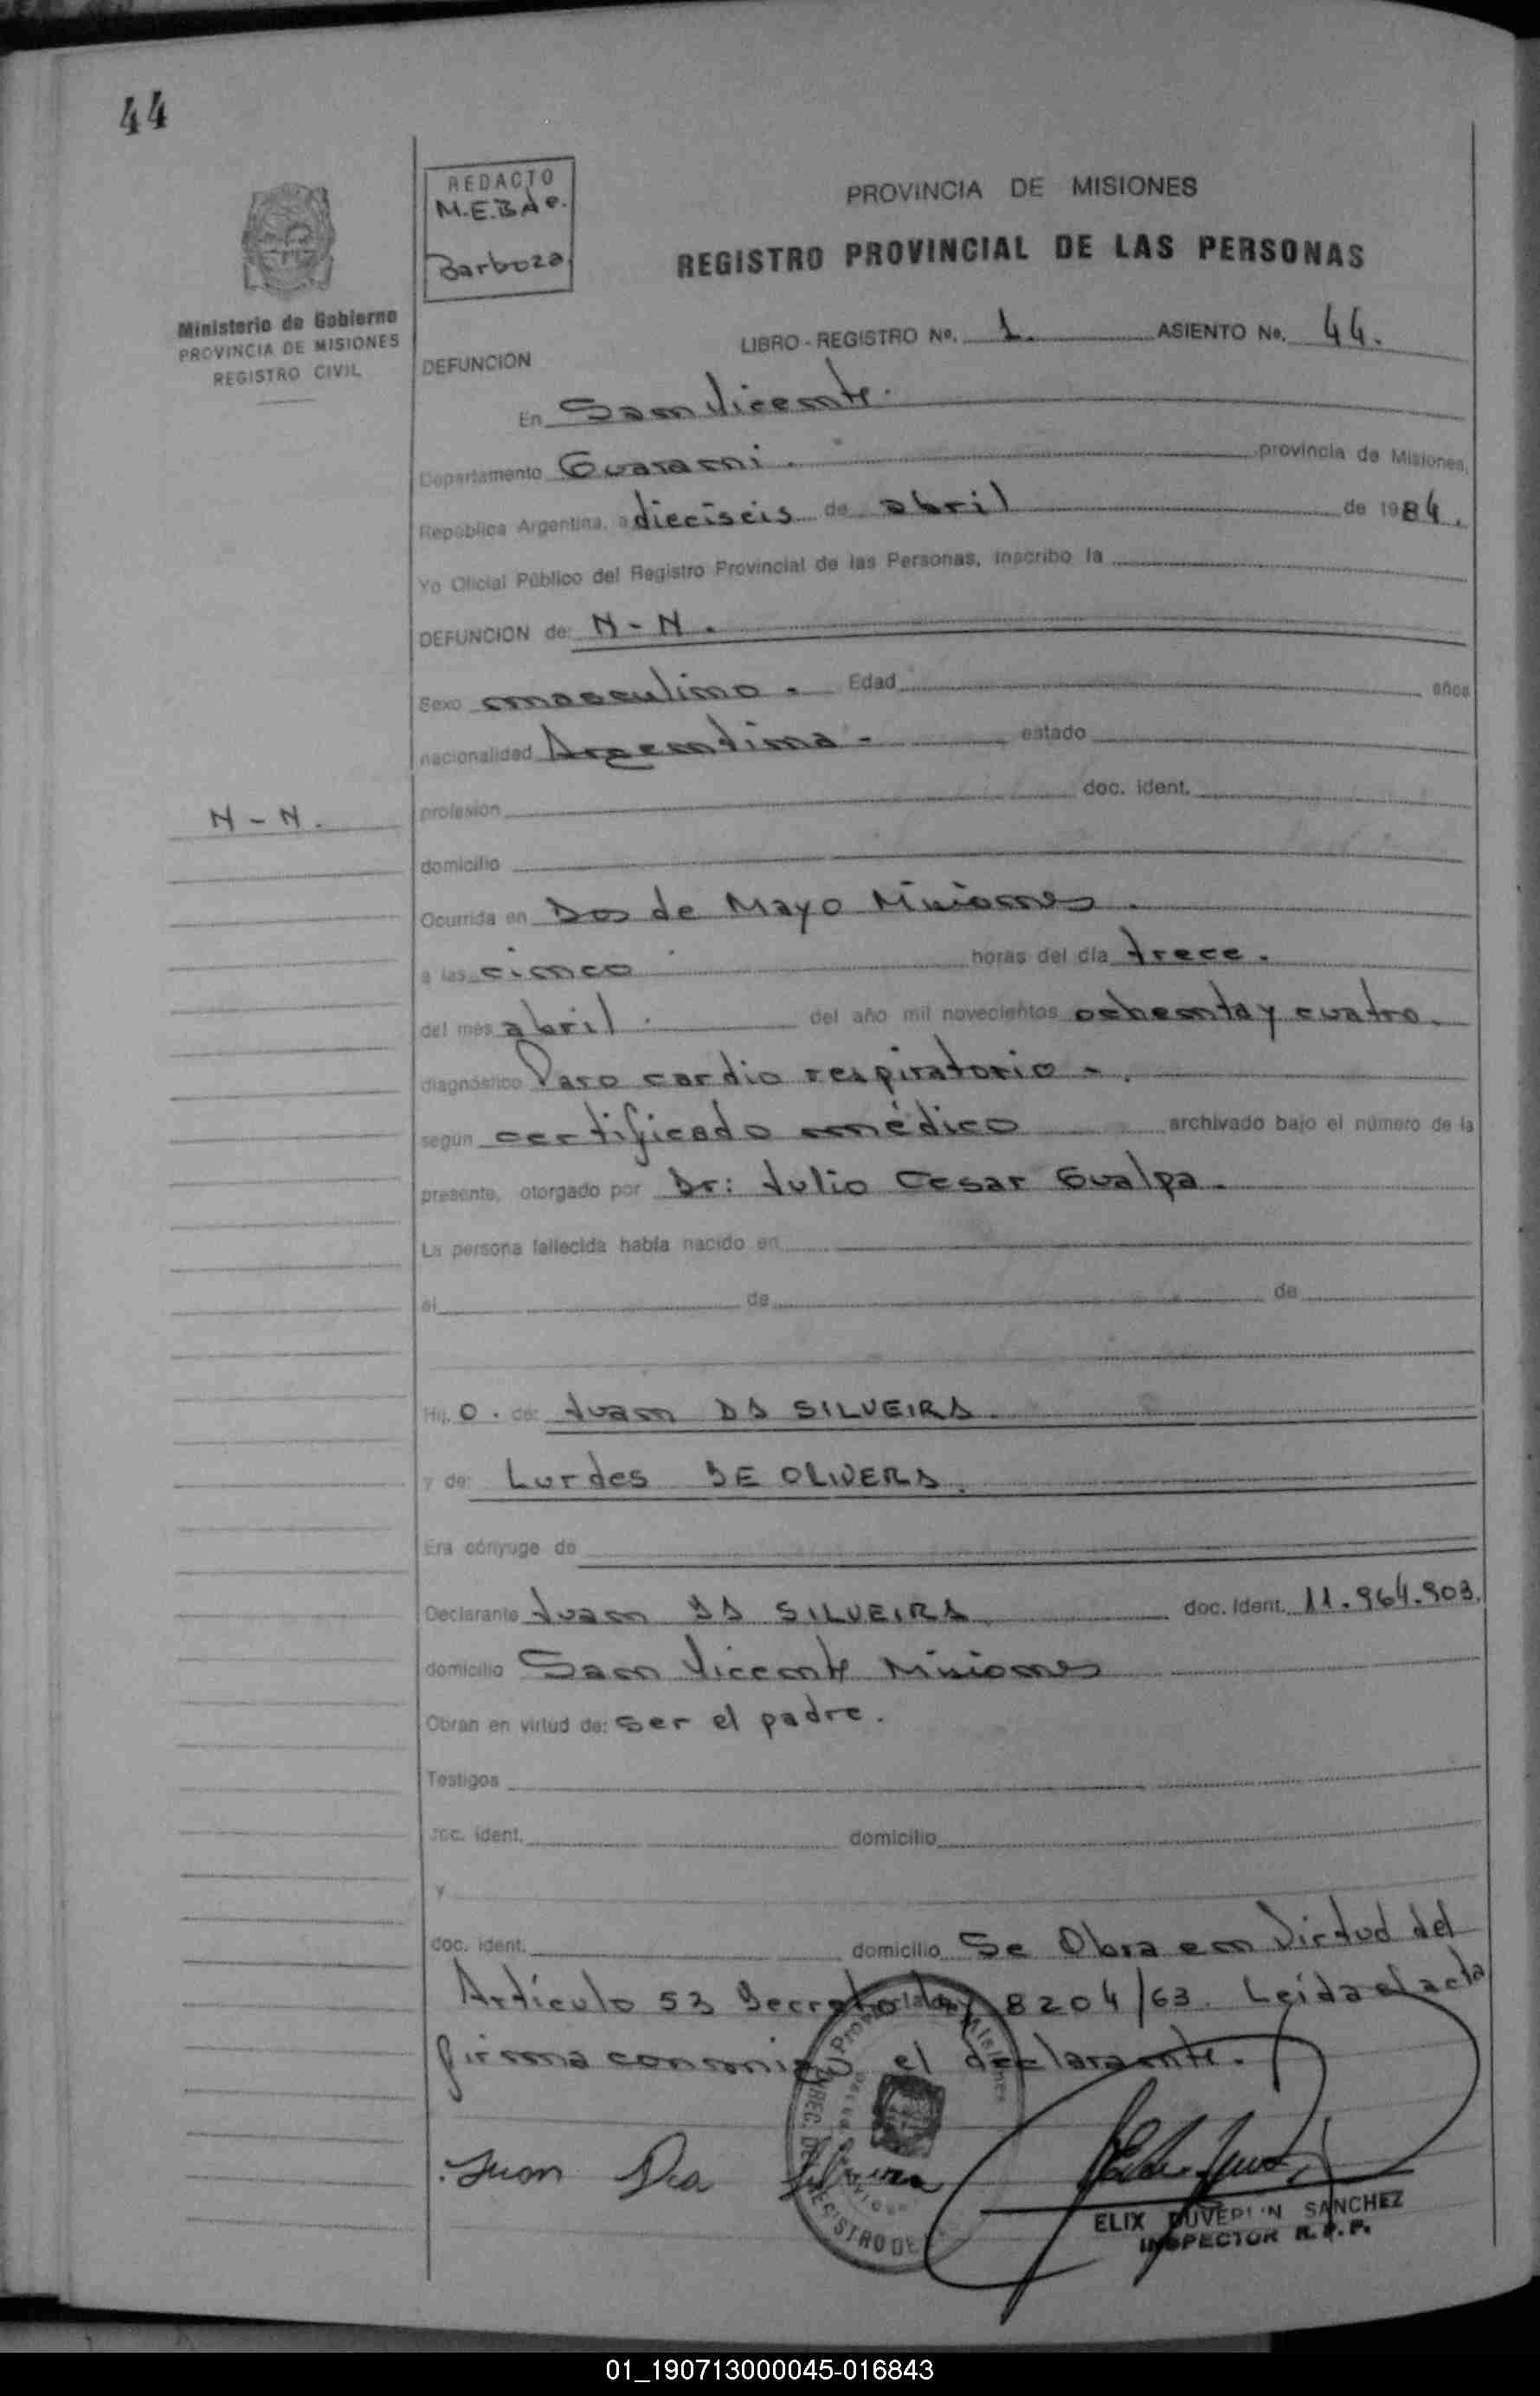 44
REDACTO
M.E.B de.
Barboza
PROVINCIA DE MISIONES
REGISTRO PROVINCIAL DE LAS PERSONAS
Ministerio de Gobierno
PROVINCIA DE MISIONES
REGISTRO CIVIL
LIBRO - REGISTRO Nº. 1. ASIENTO No. 44.
DEFUNCION
En San Vicente.
Departamento Guarani. provincia de Misiones,
República Argentina, a dieciseis de abril de 1984.
Yo Oficial Público del Registro Provincial de las Personas, inscribo la
DEFUNCION de: N-N.
Sexo masculino. Edad años
nacionalidad Argentina - estado
profesión doc. ident.
N-N.
domicilio
Ocurrida en Dos de Mayo Misiones.
a las cinco horas del día trece.
del mes abril. del año mil novecientos ochenta y cuatro.
diagnóstico Paro cardio respiratorio -.
según certificado médico archivado bajo el número de la
presente, otorgado por Dr: Julio Cesar Gualpa.
La persona fallecida había nacido en
el de de
Hij O. de: Juan DA SILVEIRA.
y de: Lurdes DE OLIVERA.
Era cónyuge de
Declarante Juan DA SILVEIRA doc. ident. 11.964.903.
domicilio San Vicente Misiones
Obran en virtud de: ser el padre.
Testigos
doc. ident. domicilio
y
doc. ident. domicilio Se Obra en Virtud del
Artículo 53 Decreto ley 8204/63. Leida el acta
firma conmigo el declarante.
Juan Da Silveira
ELIX DUVERLIN SANCHEZ
INSPECTOR R.P.P.
01_190713000045-016843